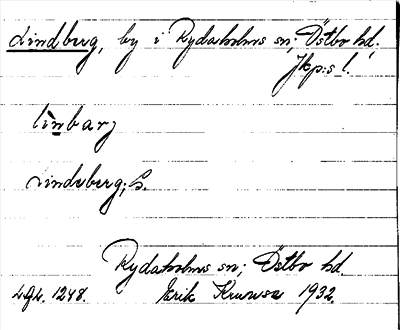 Lindberg, by i Rydaholms sn; Östbo hd.
Jkp:s l.
linbarj
Lindeberg; S.
Rydaholms sn; Östbo hd
Lgk. 1248. Erik Kruuse 1932.